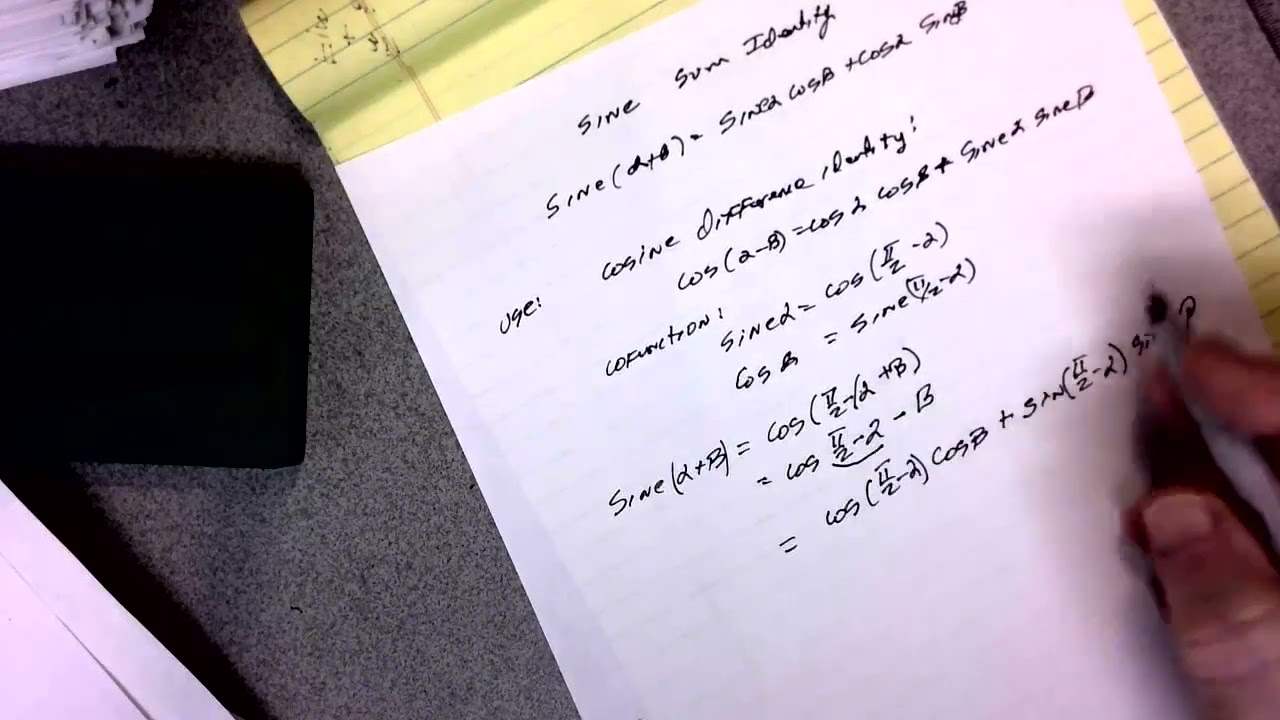 sine sum Identity
sine(α+B) = sineα cosB + cosα sinB
cosine difference identity:
use: cos(α-B) = cosα cosB + sineα sineB
cofunction: sineα = cos(π/2 - α)
cosB = sine(π/2 - α)
sine(α+B) = cos(π/2 - (α+B)
= cos π/2 - α - B
= cos(π/2 - α) cosB + sin(π/2 - α)